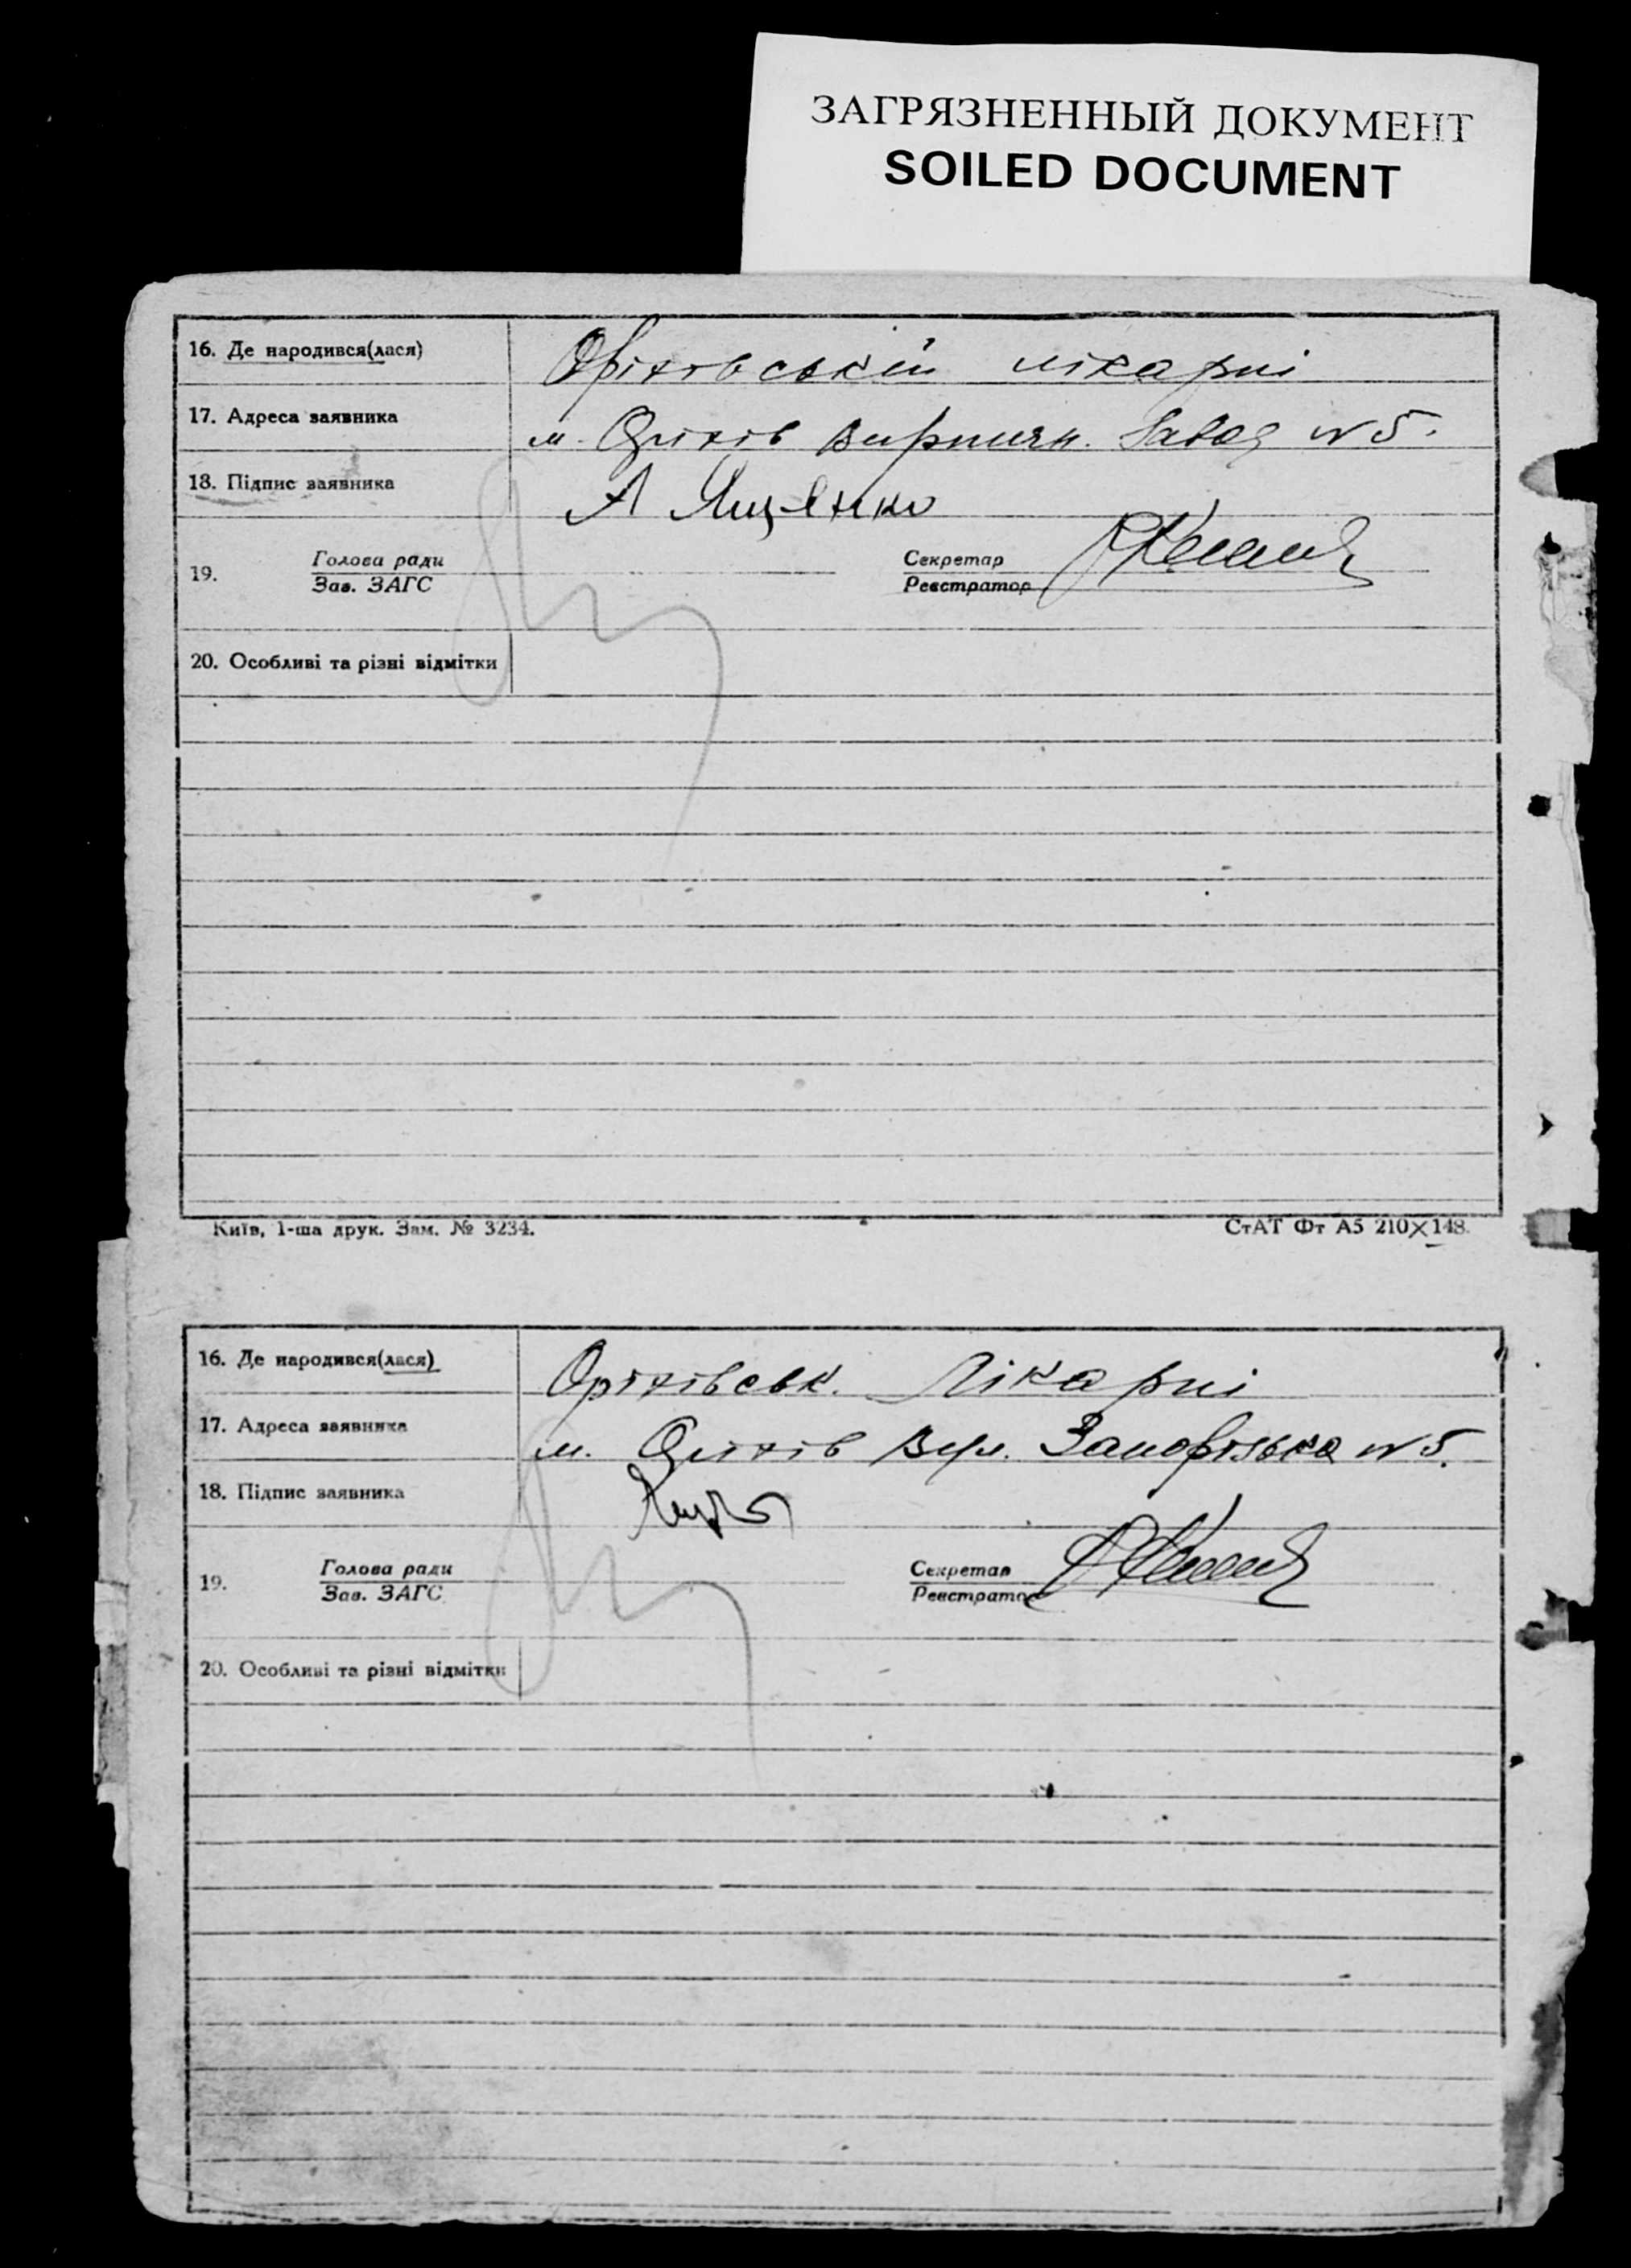 ЗАГРЯЗНЕННЫЙ ДОКУМЕНТ
SOILED DOCUMENT
16. Де народився(лася) Оріхівській лікарні
17. Адреса заявника м. Оріхів завод №5.
18. Підпис заявника А Яценко
19. Голова ради Секретар
Зав. ЗАГС Реєстратор
20. Особливі та різні відмітки
Київ, 1-ша друк. Зам. № 3234. СтАТ Фт А5 210×148.
16. Де народився(лася) Оріхівськ. Лікарні
17. Адреса заявника м. Оріхів вул. Запорізька №5.
18. Підпис заявника
19. Голова ради Секретар
Зав. ЗАГС Реєстратор
20. Особливі та різні відмітки